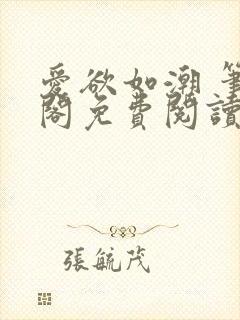 愛欲如潮 筆
閣免費閱讀
張毓茂